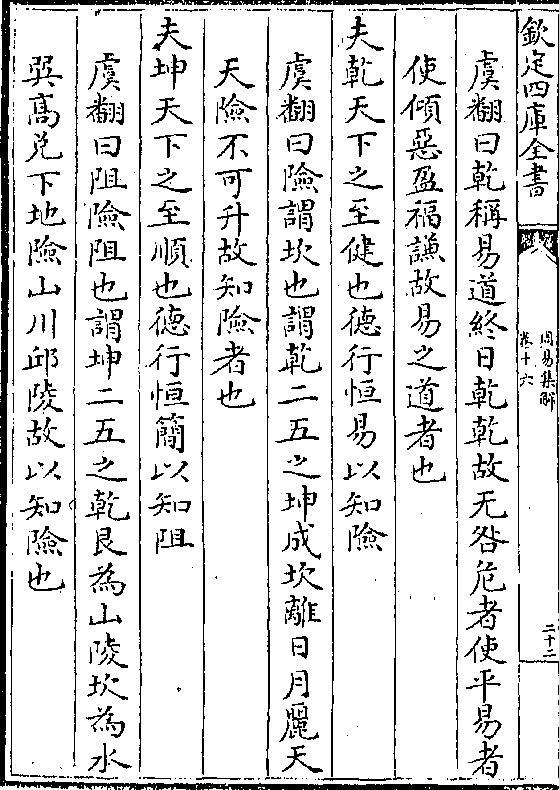 欽定四庫全書
周易集解
卷十六
二十二
虞翻曰乾稱易道終日乾乾故无咎危者使平易者
使傾惡盈福謙故易之道者也
夫乾天下之至健也德行恒易以知險
虞翻曰險謂坎也謂乾二五之坤成坎離日月麗天
天險不可升故知險者也
夫坤天下之至順也德行恒簡以知阻
虞翻曰阻險阻也謂坤二五之乾艮為山陵坎為水
巽高兌下地險山川邱陵故以知險也